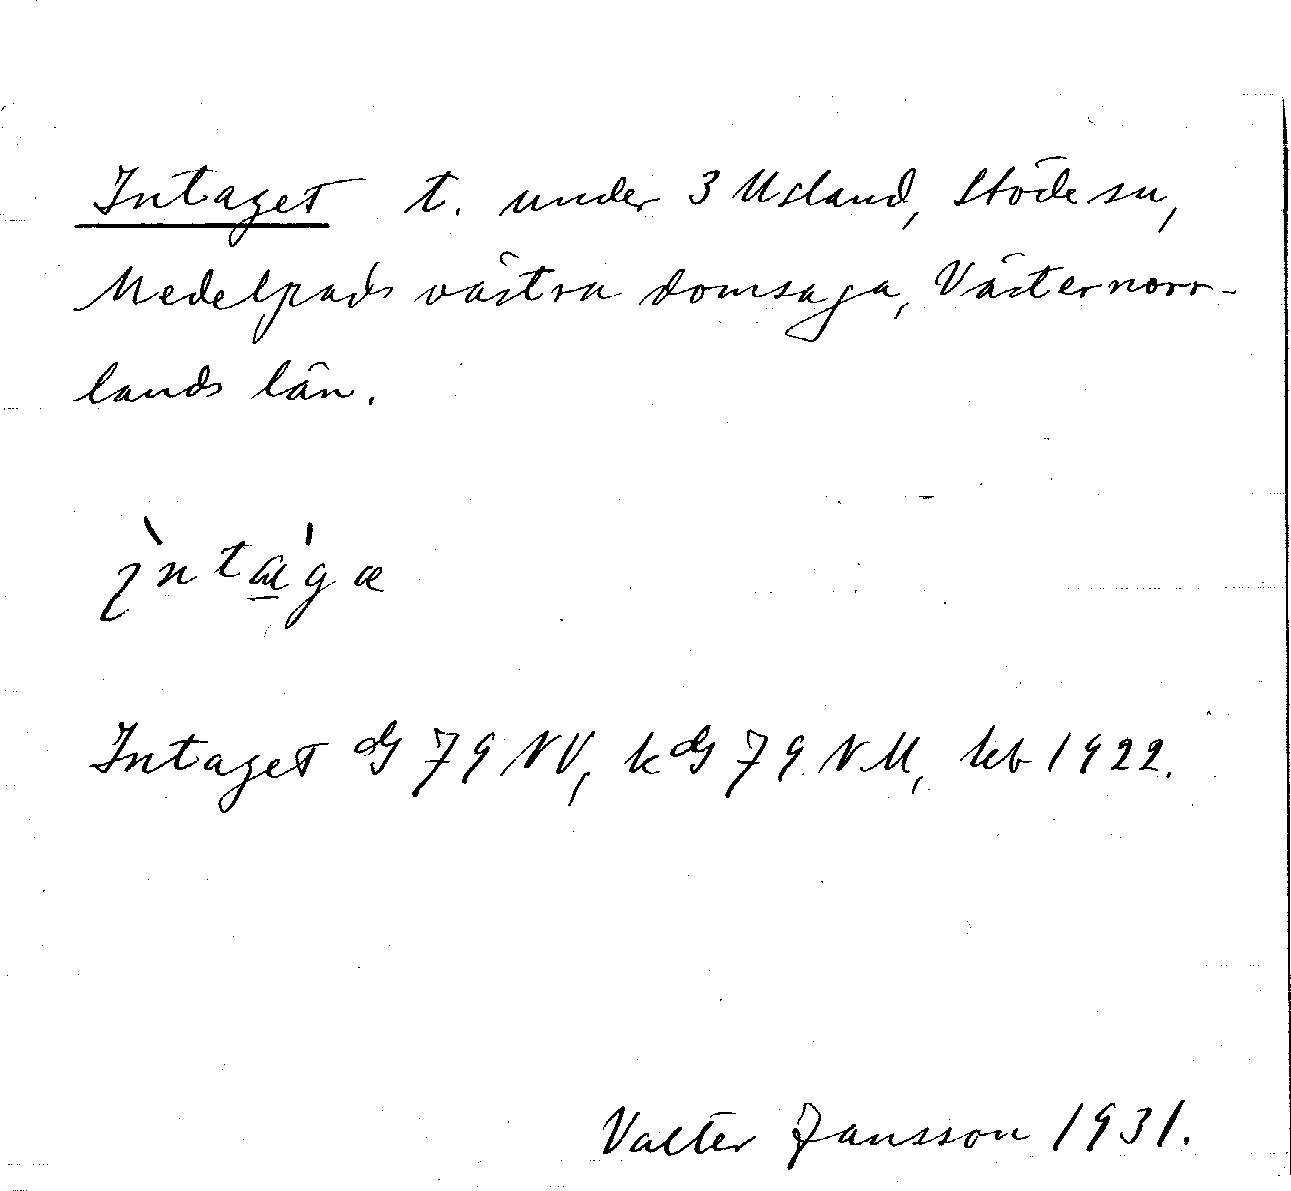 Intaget t. under 3 Usland, Stöde sn,
Medelpads västra domsaga, Västernorr-
lands län.
Intaget dG 79 NV, kdG 79 NM, kb 1922.
Valter Jansson 1931.